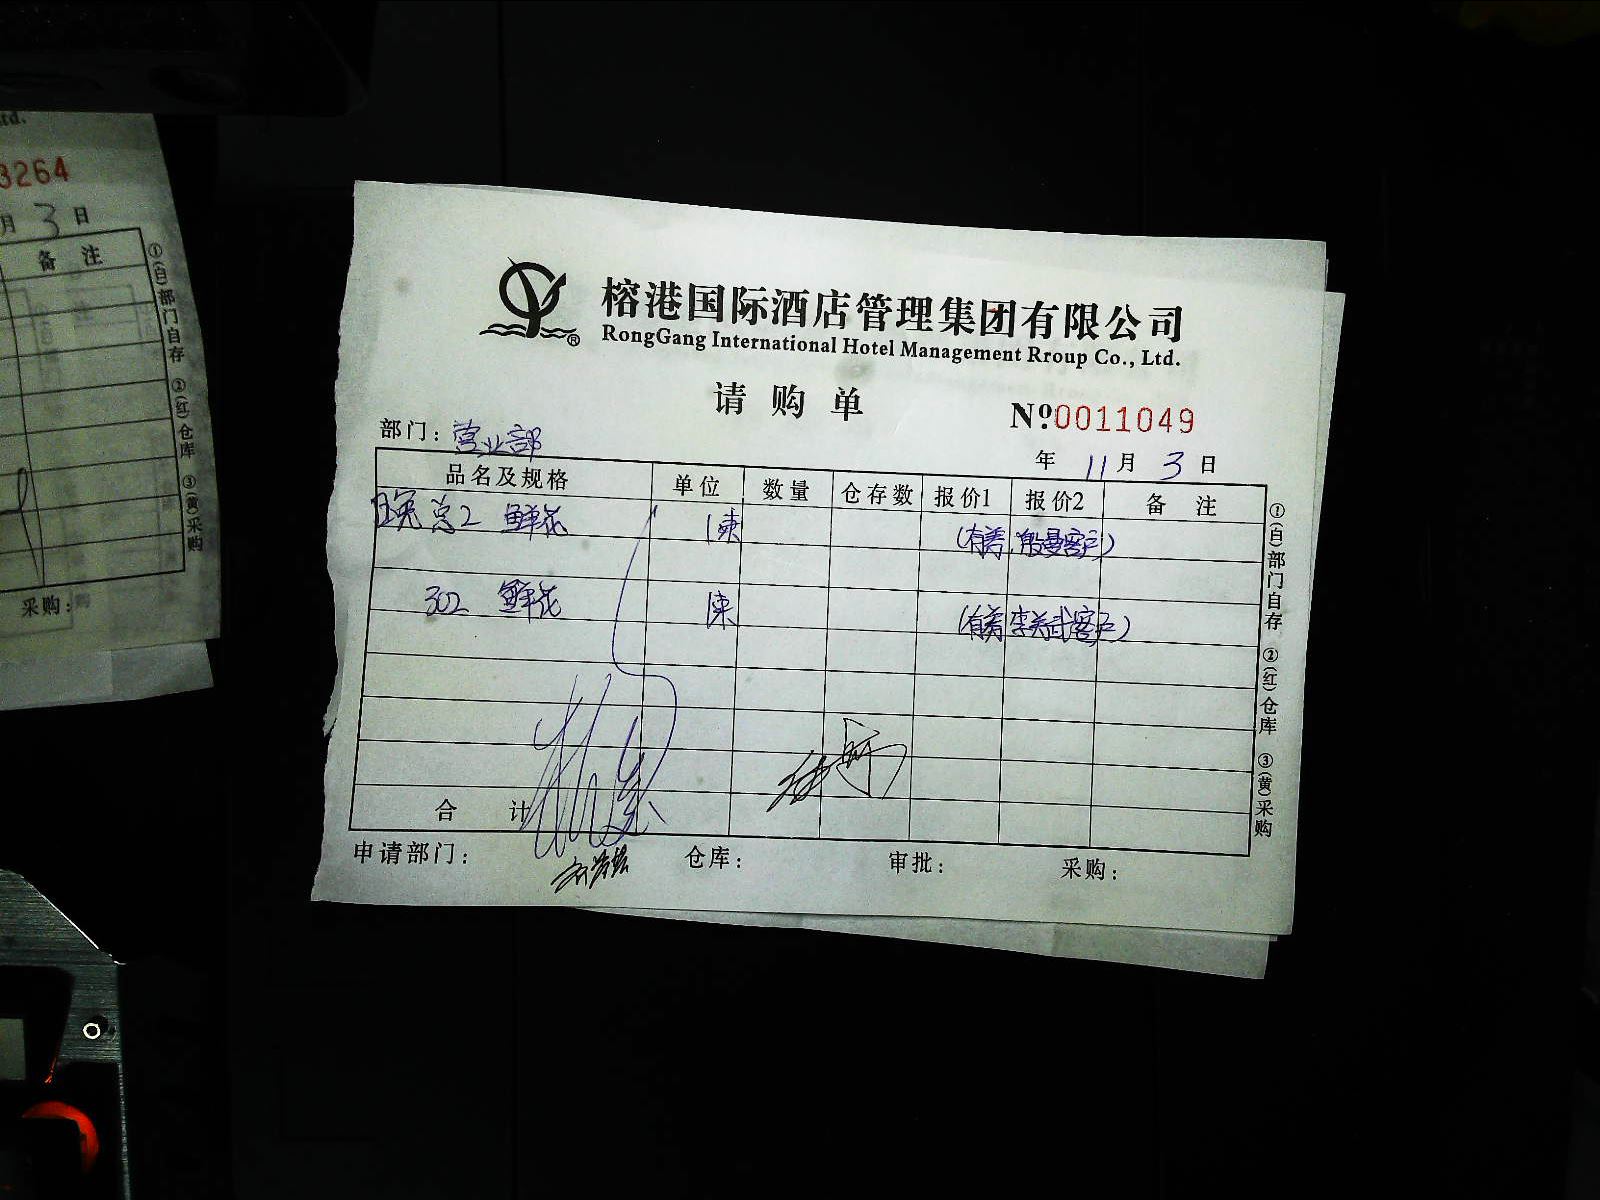 td.
3264
月 3 日
备 注
①(白)部门自存 ②(红)仓库 ③(黄)采购
采购:
榕港国际酒店管理集团有限公司
RongGang International Hotel Management Rroup Co., Ltd.
请购单
Nº0011049
部门: 营业部
年 11 月 3 日
品名及规格 单位 数量 仓存数 报价1 报价2 备 注
晚 总2 鲜花 1束 (有着 殷曼客户)
302 鲜花 1束 (有着 李关武客户)
合 计
申请部门: 仓库: 审批: 采购:
①(白)部门自存 ②(红)仓库 ③(黄)采购